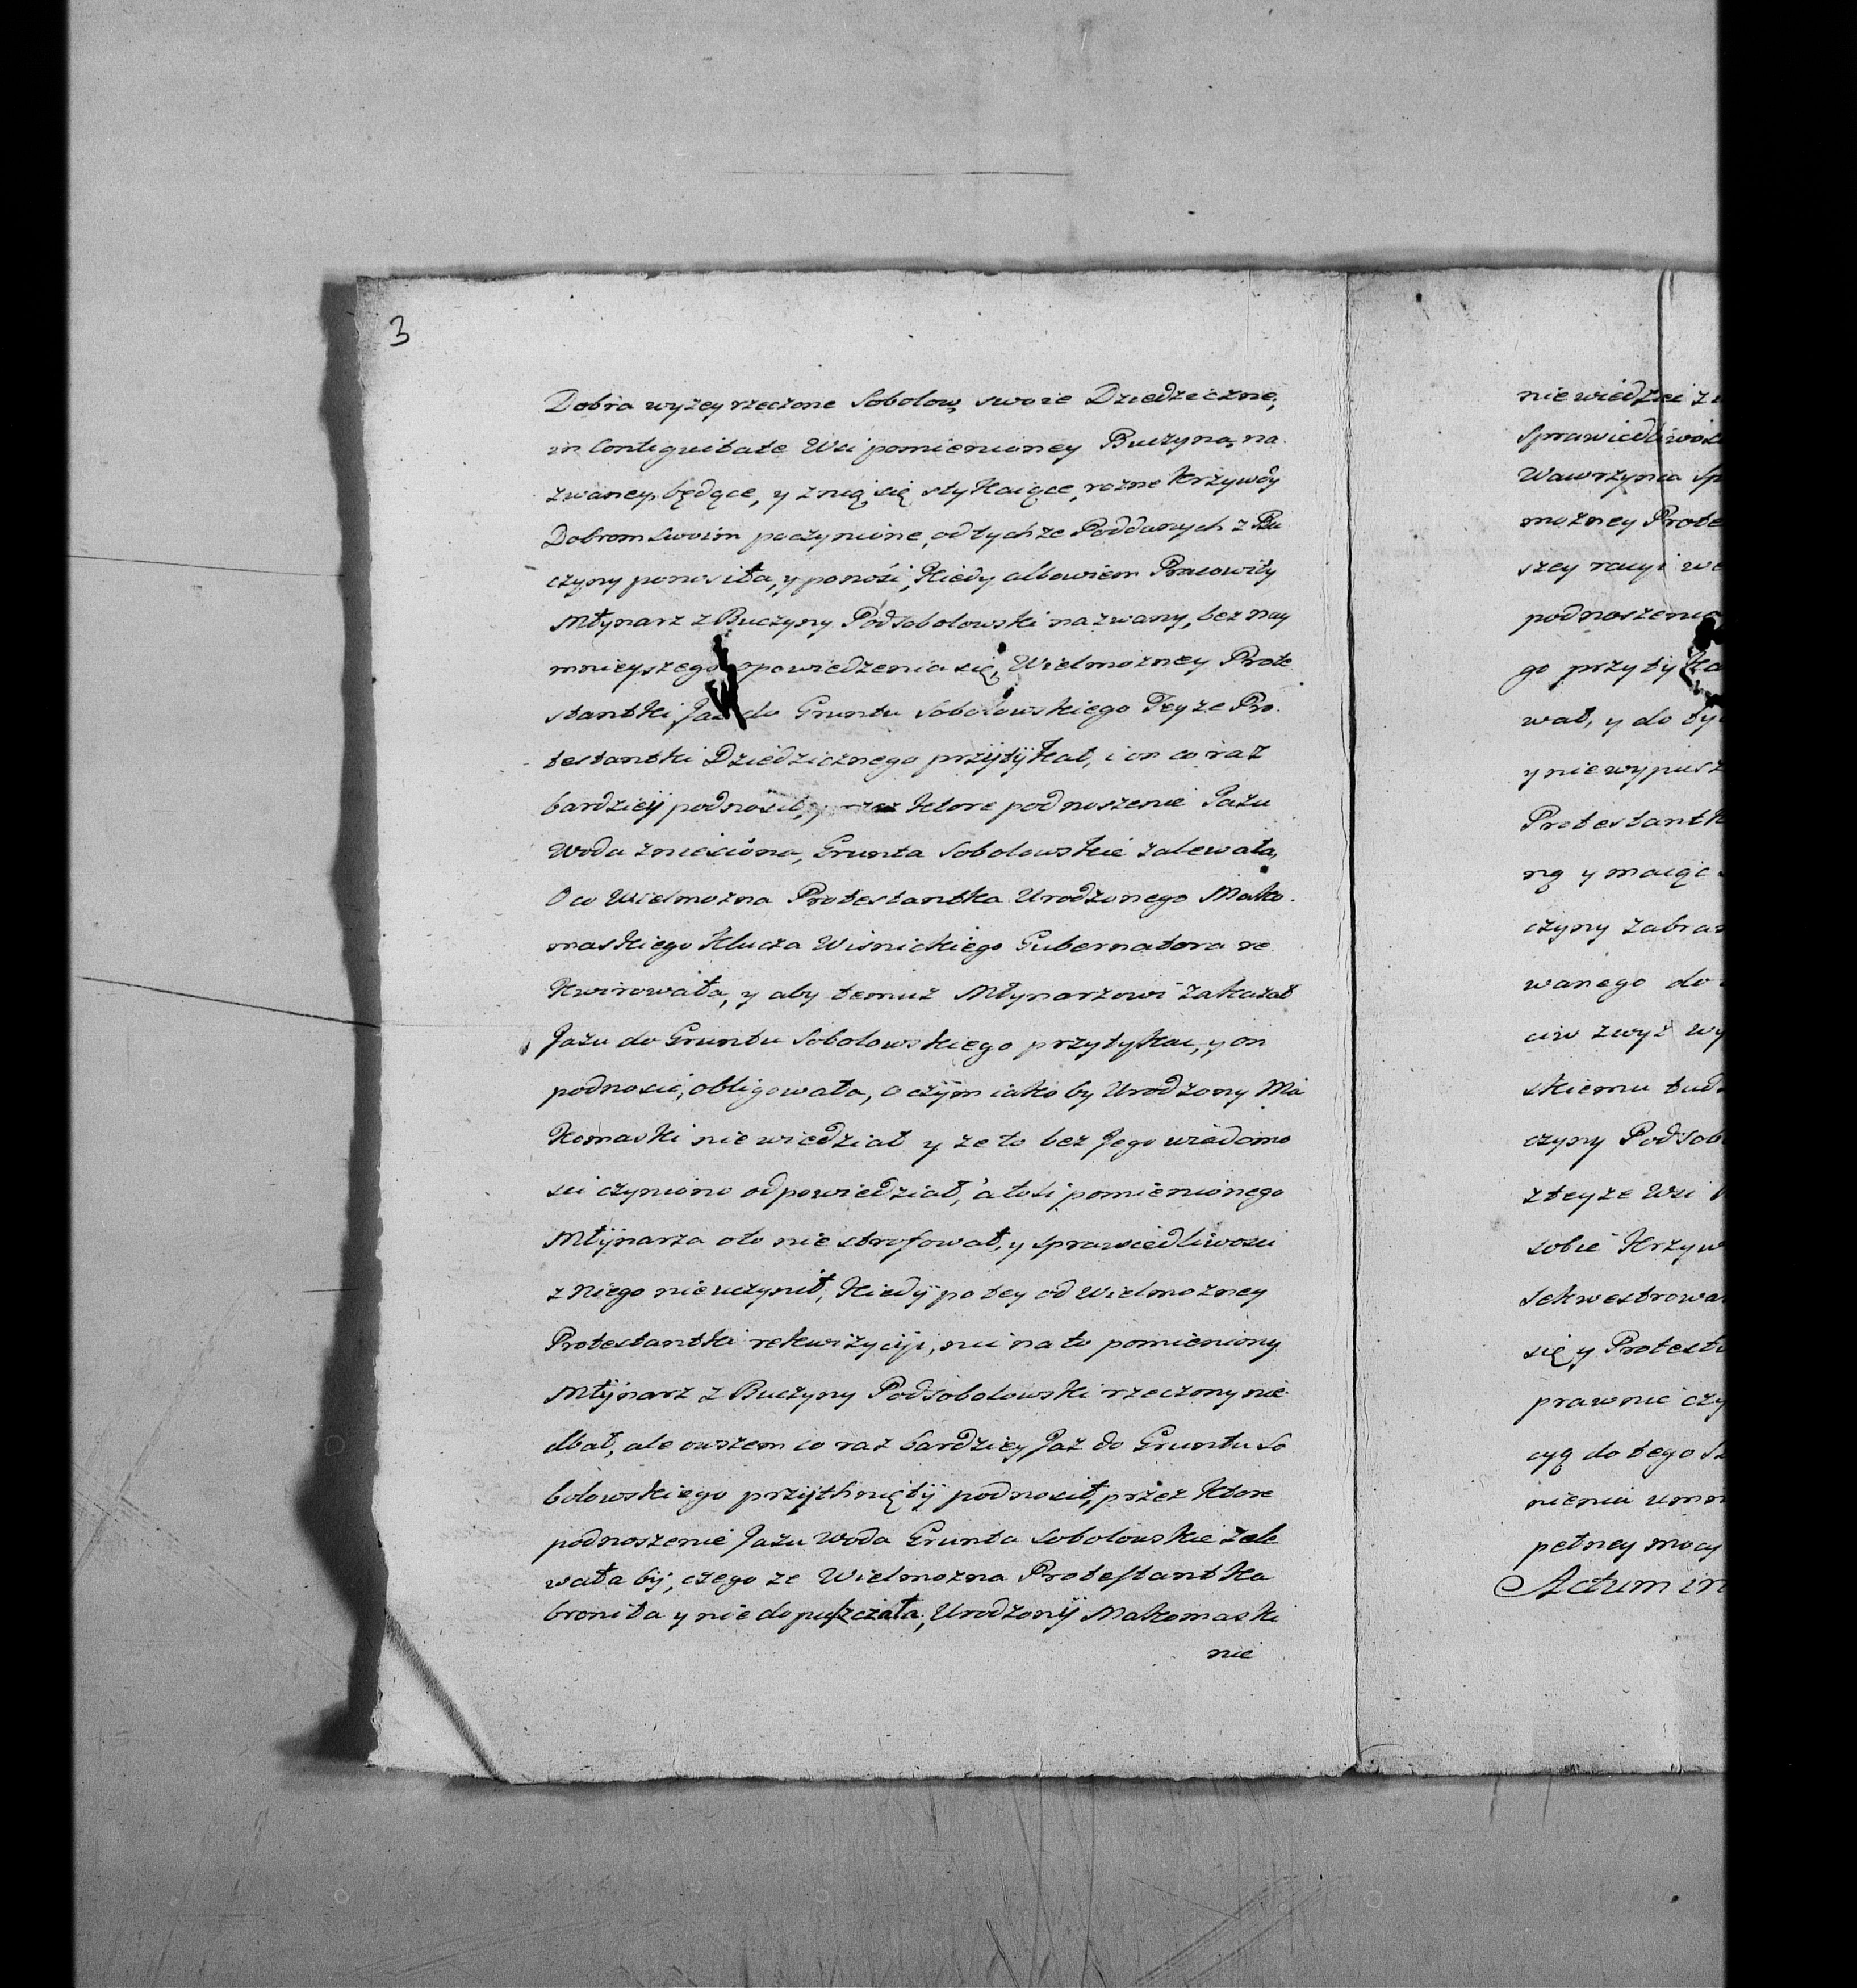 3
Dobra wyżey rzeczone Sobolow, swoie Dziedziczne,
in Contiguitate Wsi pomienioney Buczyną na
zwaney będące, y znią się stykaiące, rozne Krzywdy
Dobrom Swoim poczynione, od tychze Poddanych z Bu
czyny ponosiła, y ponosi, Kiedy albowiem Pracowity
Młynarz z Buczyny Podsobolowski nazwany, bez nay
mnieyszego opowiedzenia się, Wielmozney Prote
stantki, Jaz do Gruntu Sobolowskiego Teyze Pro
testantki Dziedzicznego przytykał, i on co raz
bardziey podnosił, przez ktore podnoszenie Jazu
Woda zniesiona, Grunta Sobolowskie zalewała,
O co Wielmozna Protestantka Urodzonego Mako
maskiego Klucza Wisnickiego Gubernatora re
kwirowała, y aby temuz Młynarzowi zakazał
Jazu do Gruntu Sobolowskiego przytykac, y on
podnosic, obligowała, o czym iako by Urodzony Ma
komaski nie wiedział y ze to bez Jego wiadomo
sci czyniono odpowiedział, a tosz pomienionego
Młynarza oto nie strofował, y sprawiedliwosci
z Niego nieuczynił, Kiedy po tey od Wielmozney
Protestantki rekwizycyi, nic na to pomieniony
Młynarz z Buczyny Podsobolowski rzeczony nie
dbał, ale owszem co raz bardziey Jaz do Gruntu So
bolowskiego przythnięty podnosił, przez ktore
podnoszenie Jazu Woda Grunta Sobolowskie zale
wała by, czego ze Wielmozna Protestantka
broniła y nie dopuszczała, Urodzony Makomaski
nie
nie wiedzie
Sprawiedliwosc
Wawrzynca Sp
mozney Prote
szey racyi we
podnoszenia
go przytyka
wał, y do ty
y nie wypusz
Protestantk
ną y maiąc
czyny zabra
wanego do
ciw zwyż wy
skiemu tud
czyny Podsob
z teyze Wsi
sobie Krzyw
Sekwestrowa
się y Protest
prawnie czy
cyą do tego
nienia umn
pełney mocy
Actum in